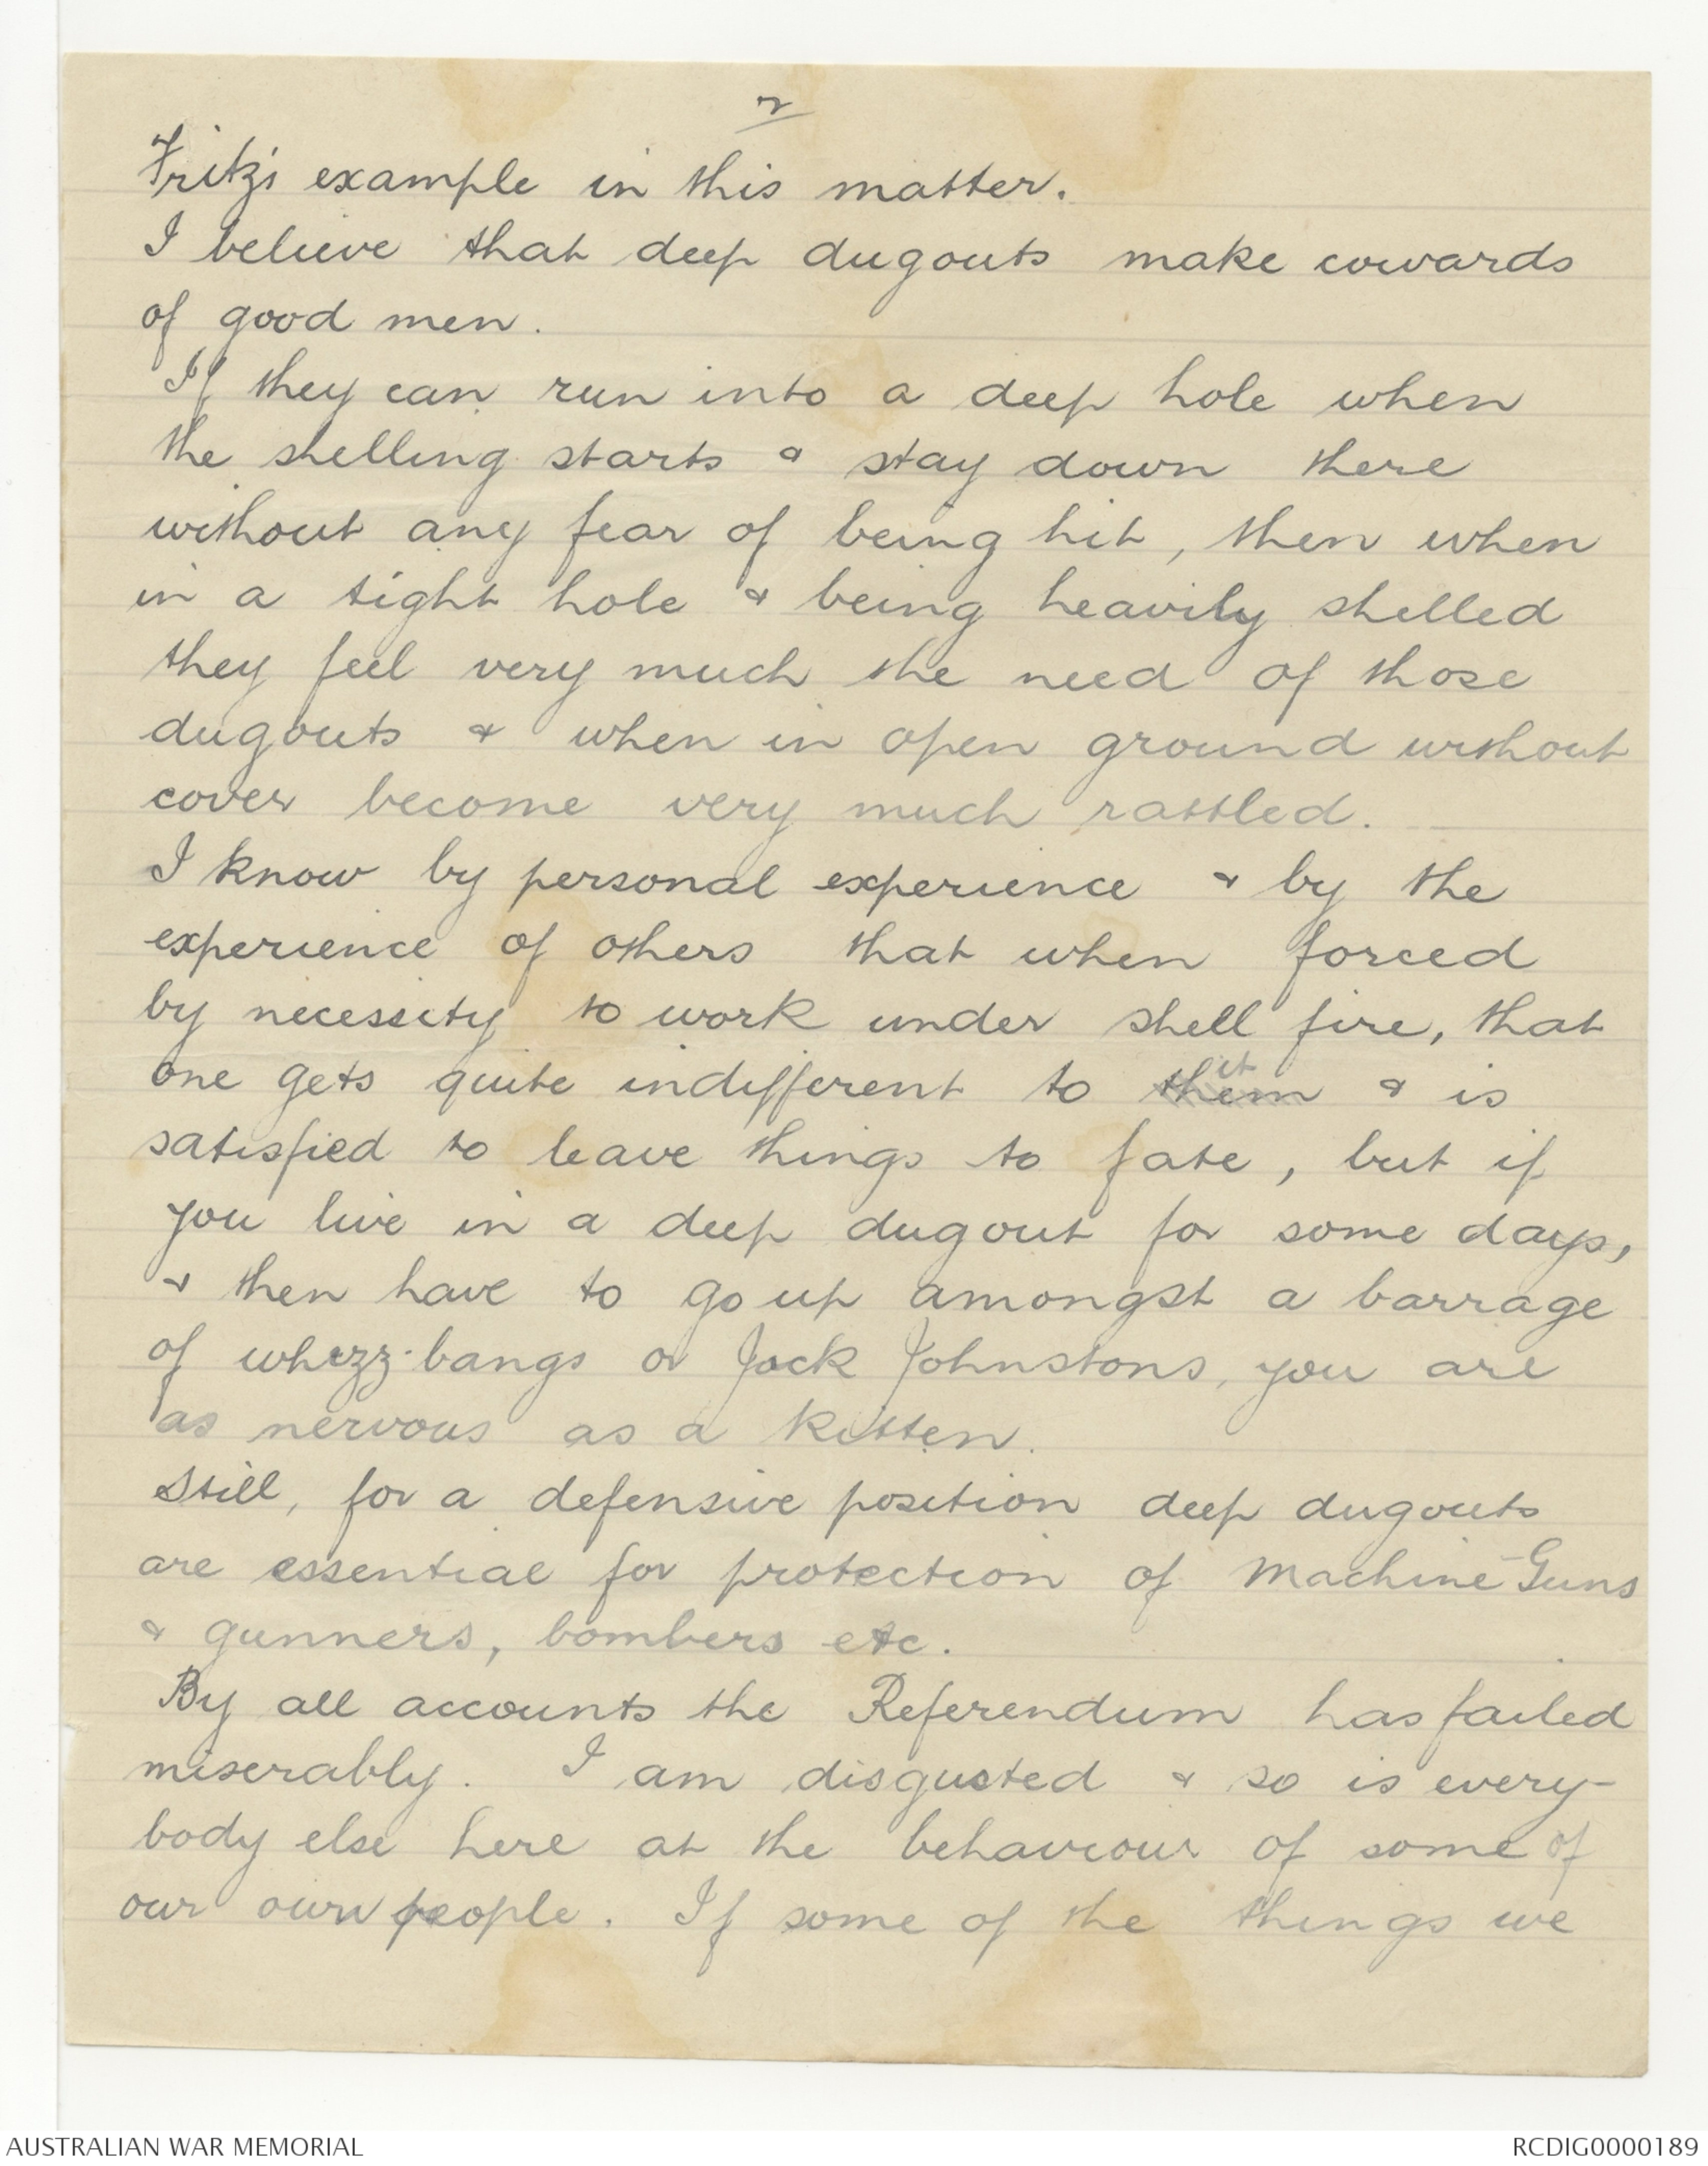 2
Fritz's example in this matter.
I believe that deep dugouts make cowards
of good men.
If they can run into a deep hole when
the shelling starts & stay down there
without any fear of being hit, then when
in a tight hole & being heavily shelled
they feel very much the need of those
dugouts & when in open ground without
cover become very much rattled.
I know by personal experience & by the
experience of others that when forced
by necessity to work under shell fire, that
one gets quite indifferent to them it & is
satisfied to leave things to fate, but if
you live in a deep dugout for some days,
& then have to go up amongst a barrage
of whizz-bangs or Jack Johnstons, you are
as nervous as a kitten.
Still, for a defensive position deep dugouts
are essential for protection of Machine-Guns
& gunners, bombers etc.
By all accounts the Referendum has failed
miserably. I am disgusted & so is every-
body else here at the behaviour of some of
our own people. If some of the things we
AUSTRALIAN WAR MEMORIAL
RCDIG0000189